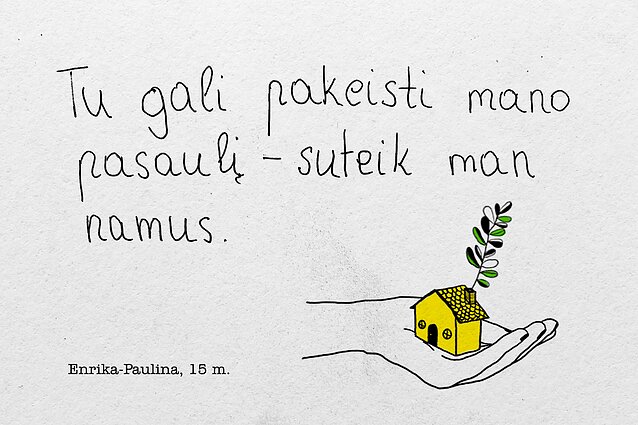 Tu gali pakeisti mano
pasaulį – suteik man
namus.
Enrika-Paulina, 15 m.